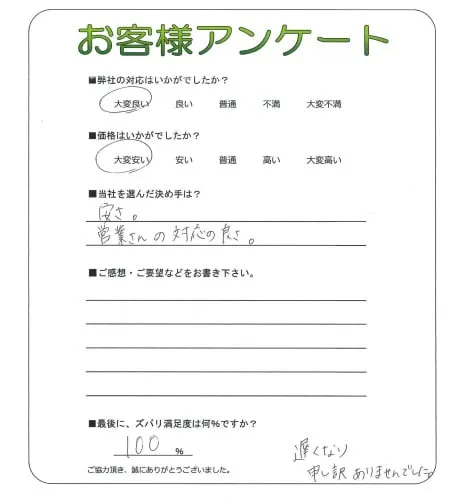 お客様アンケート
■弊社の対応はいかがでしたか？
大変良い 良い 普通 不満 大変不満
■価格はいかがでしたか？
大変安い 安い 普通 高い 大変高い
■当社を選んだ決め手は？
安さ。
営業さんの対応の良さ。
■ご感想・ご要望などをお書き下さい。
■最後に、ズバリ満足度は何％ですか？
100 ％
遅くなり
申し訳ありませんでした。
ご協力頂き、誠にありがとうございました。